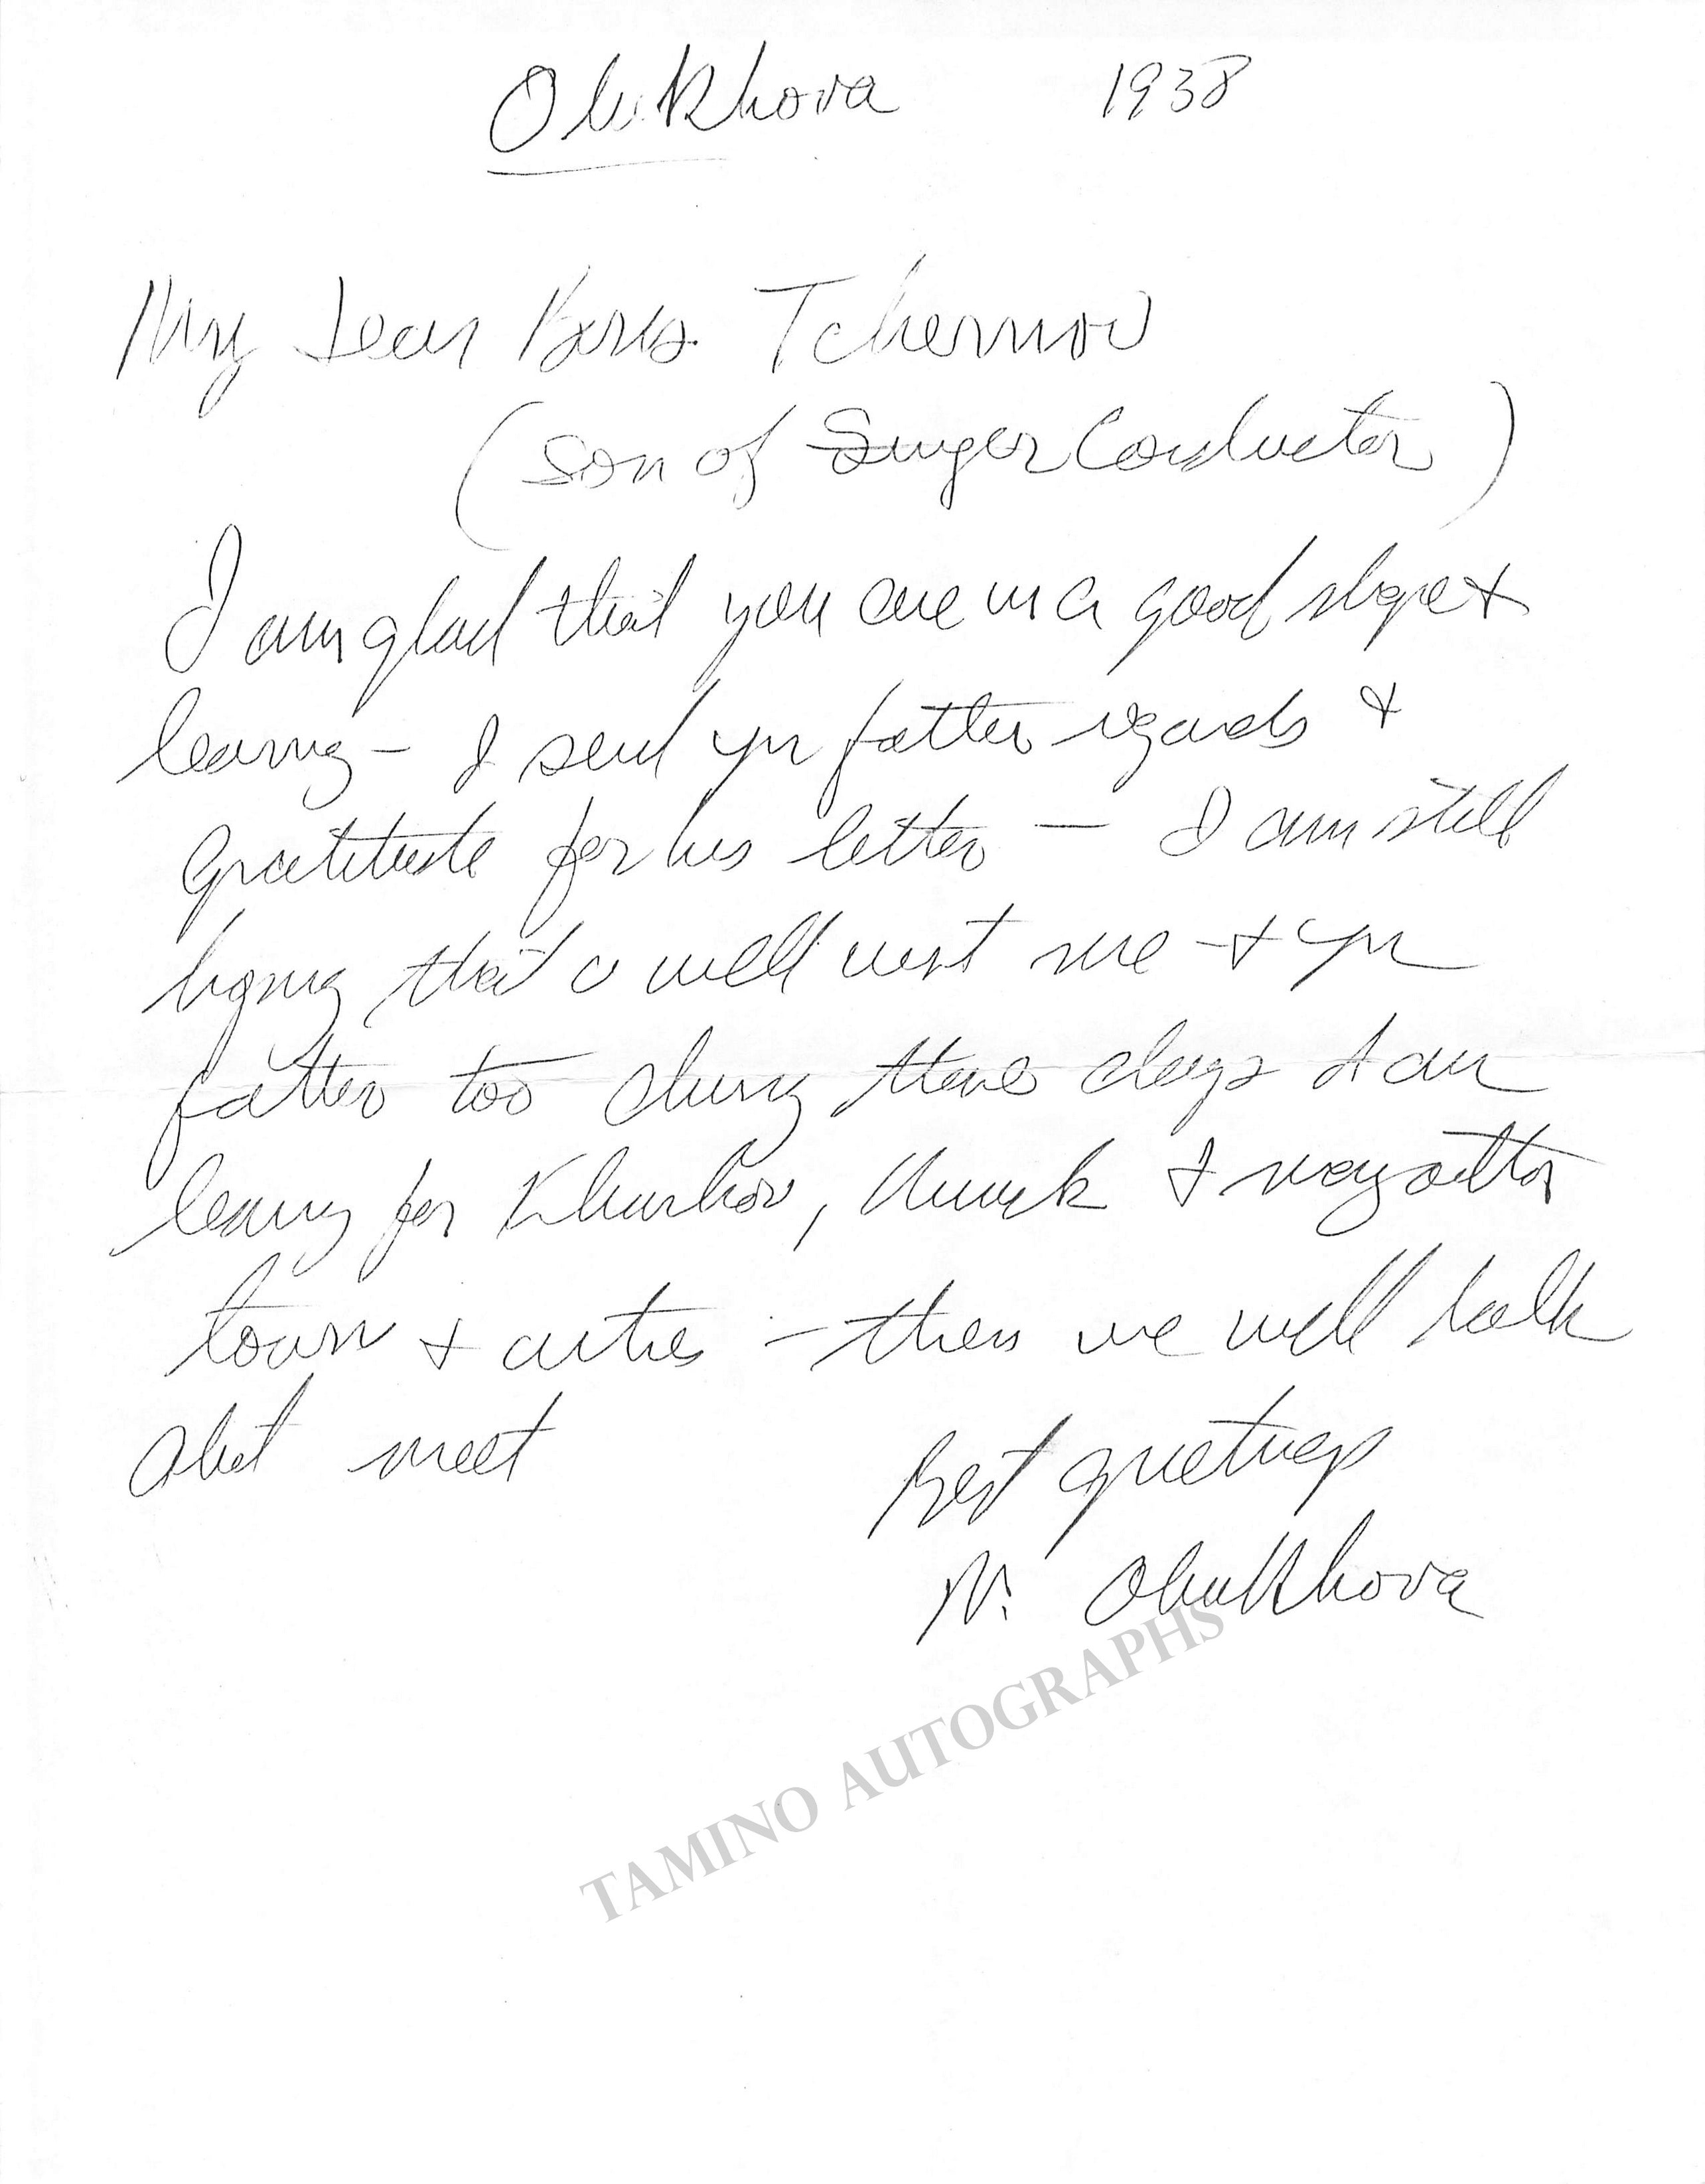 Obukhova 1938
My Dear Boris Tchernov
(son of Singer Conductor)
I am glad that you are in a good shape &
- I send yr father regards &
gratitude for his letter - I am still
hoping that u will visit me & yr
father too during these days I am
leaving for Kharkov, & many other
town & cities - then we will talk
abt meet
Best greetings
N. Obukhova
TAMINO AUTOGRAPHS